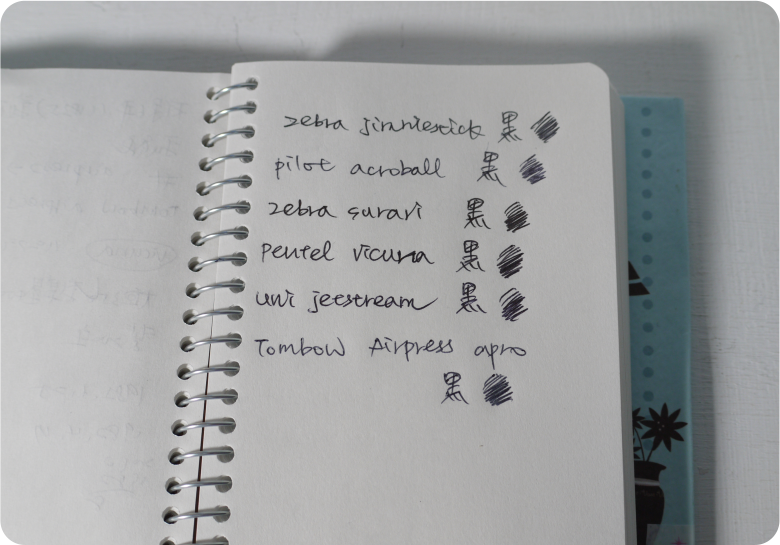 zebra jimniestick 黒
pilot acroball 黒
zebra surari 黒
pentel vicuna 黒
uni jetstream 黒
Tombow Airpress apro
黒